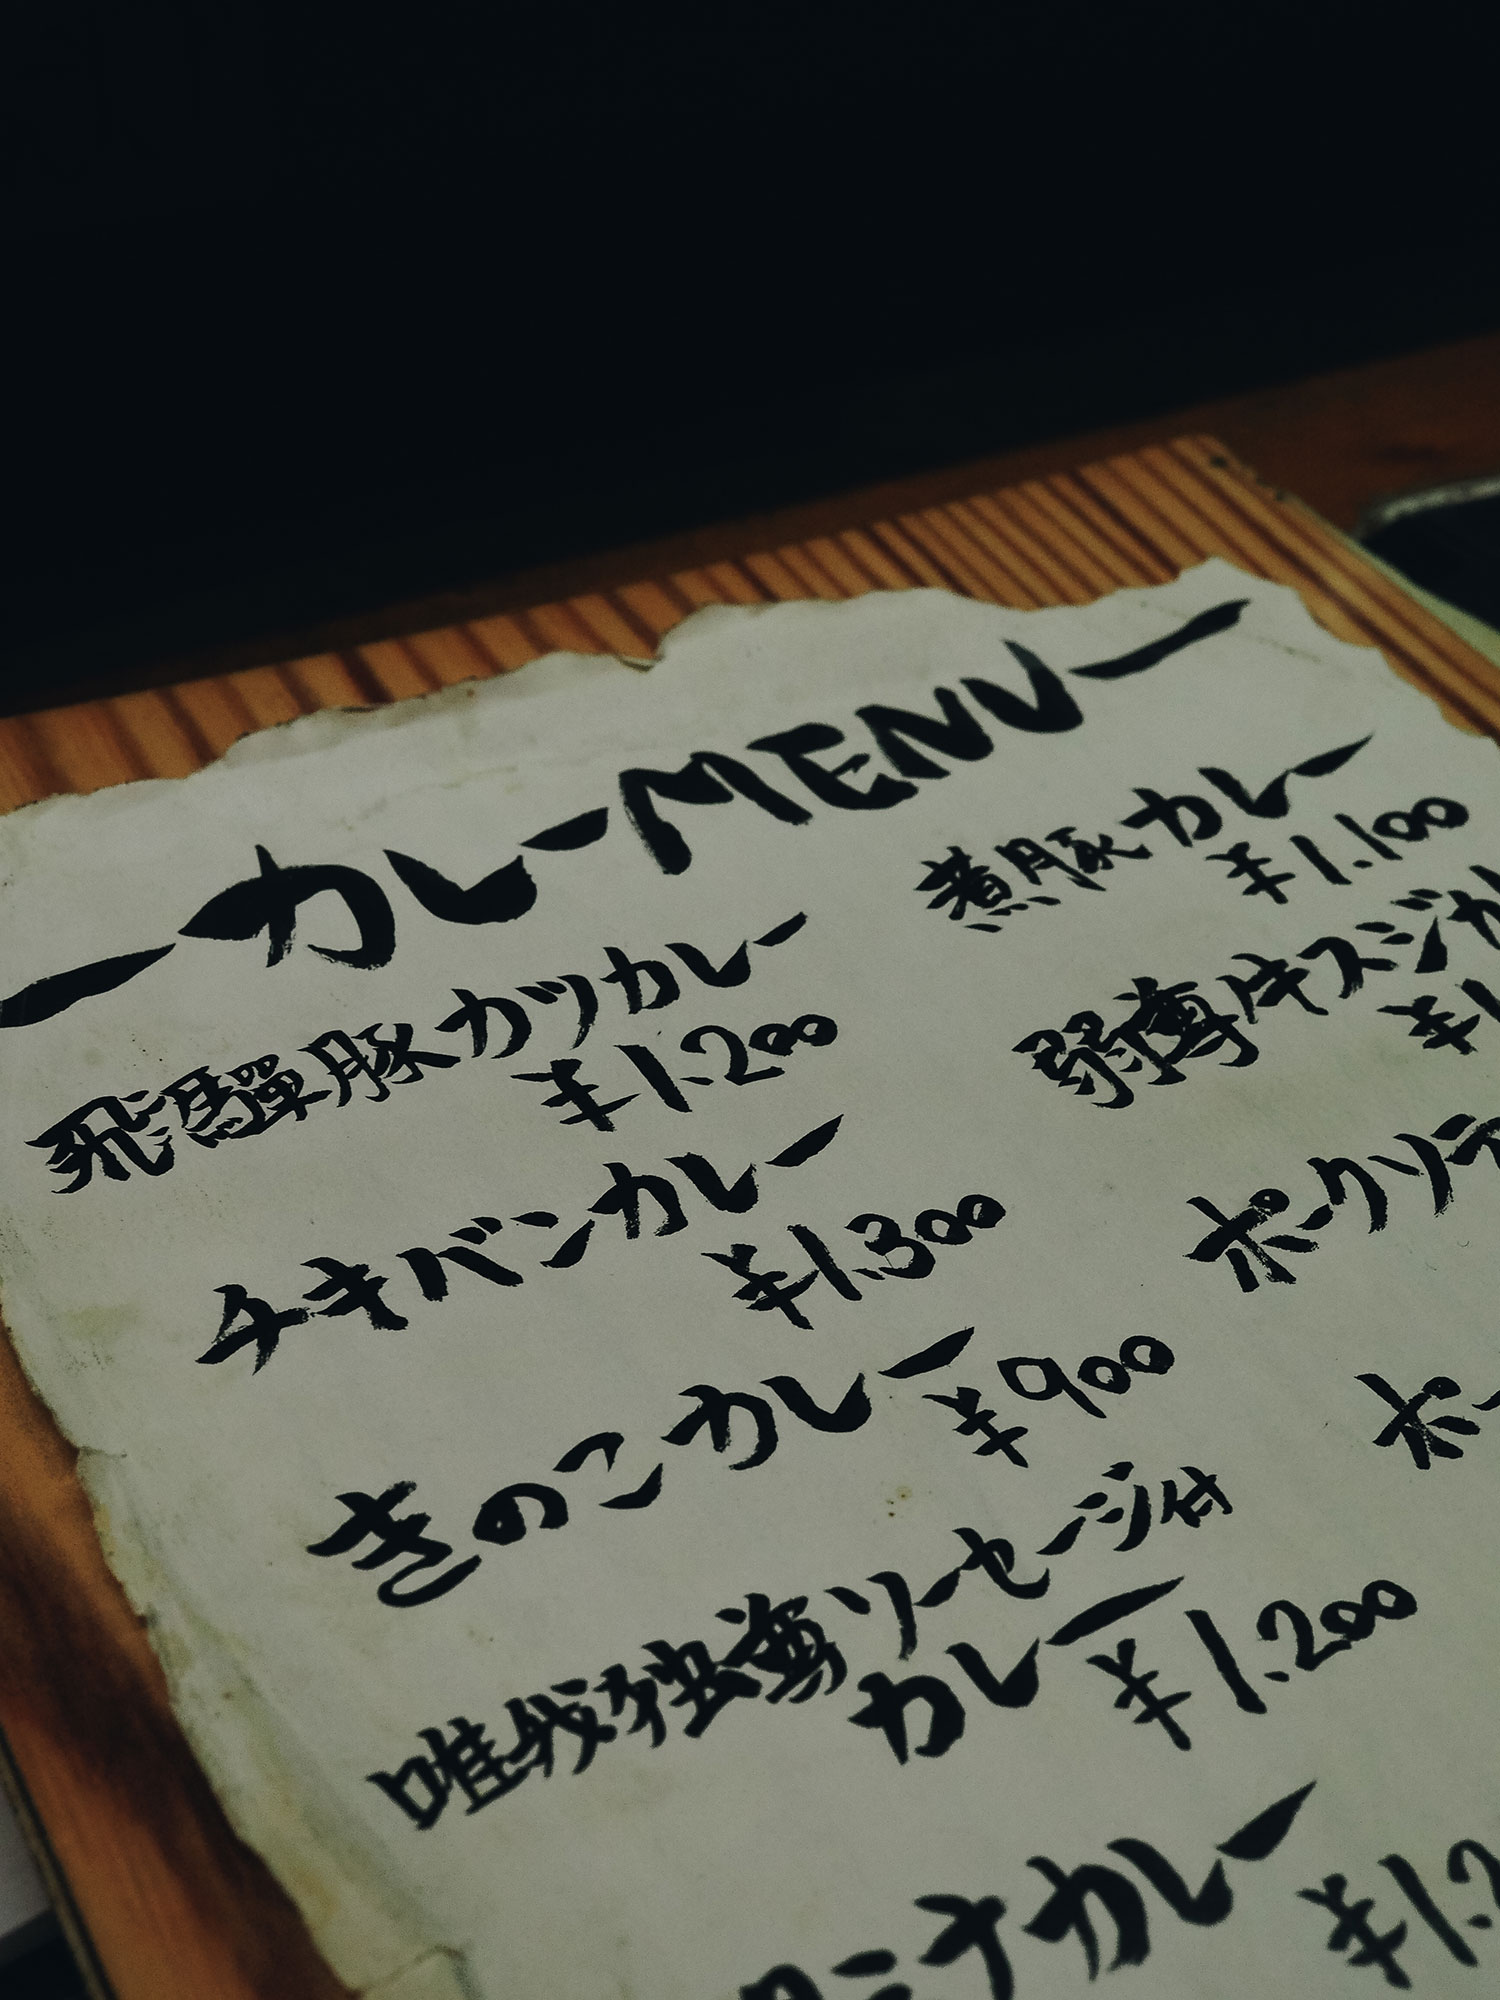 ーカレーMENUー
飛驒豚カツカレー
¥1.200
チキバンカレー
¥1.300
きのこカレー
¥900
唯我独尊ソーセージ付
カレー ¥1.200
ミナカレー
¥1.2
煮豚カレー
¥1.100
牛スジカ
¥1
ポークソテ
ポー